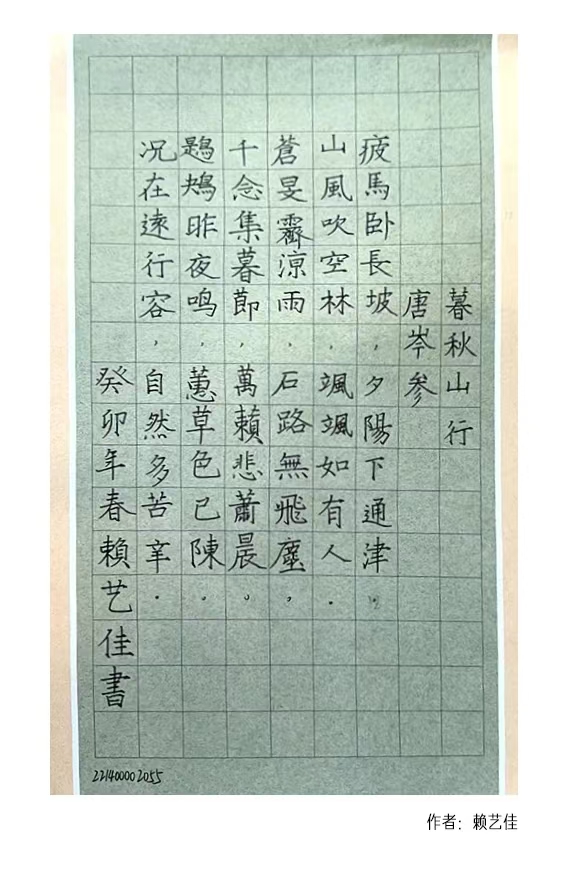 暮秋山行
唐岑参
疲馬卧長坡，夕陽下通津。
山風吹空林，颯颯如有人.
蒼旻霽涼雨，石路無飛塵，
千念集暮節，萬籟悲蕭晨。
鶗鴂昨夜鸣，蕙草色已陳。
况在遠行客，自然多苦辛.
癸卯年春賴艺佳書
221400002055
作者：赖艺佳